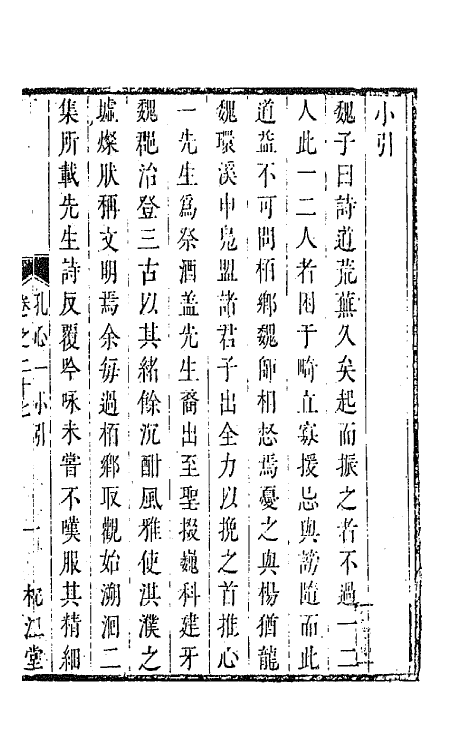 小引
魏子曰詩道荒蕪久矣起而振之者不過一二
人此一二人者困于畸立寡援忌與謗隨而此
道益不可問栢鄉魏師相愁焉憂之與楊猶龍
魏環溪申鳧盟諸君子出全力以挽之首推心
一先生為祭酒盖先生裔出至聖掇巍科建牙
魏䟽治登三古以其緒餘沉酣風雅使淇濮之
墟燦然稱文明焉余每過栢鄉取觀始溯洄二
集所載先生詩反覆吟咏未嘗不嘆服其精細
孔心一小引
卷之二十七
一
枕江堂